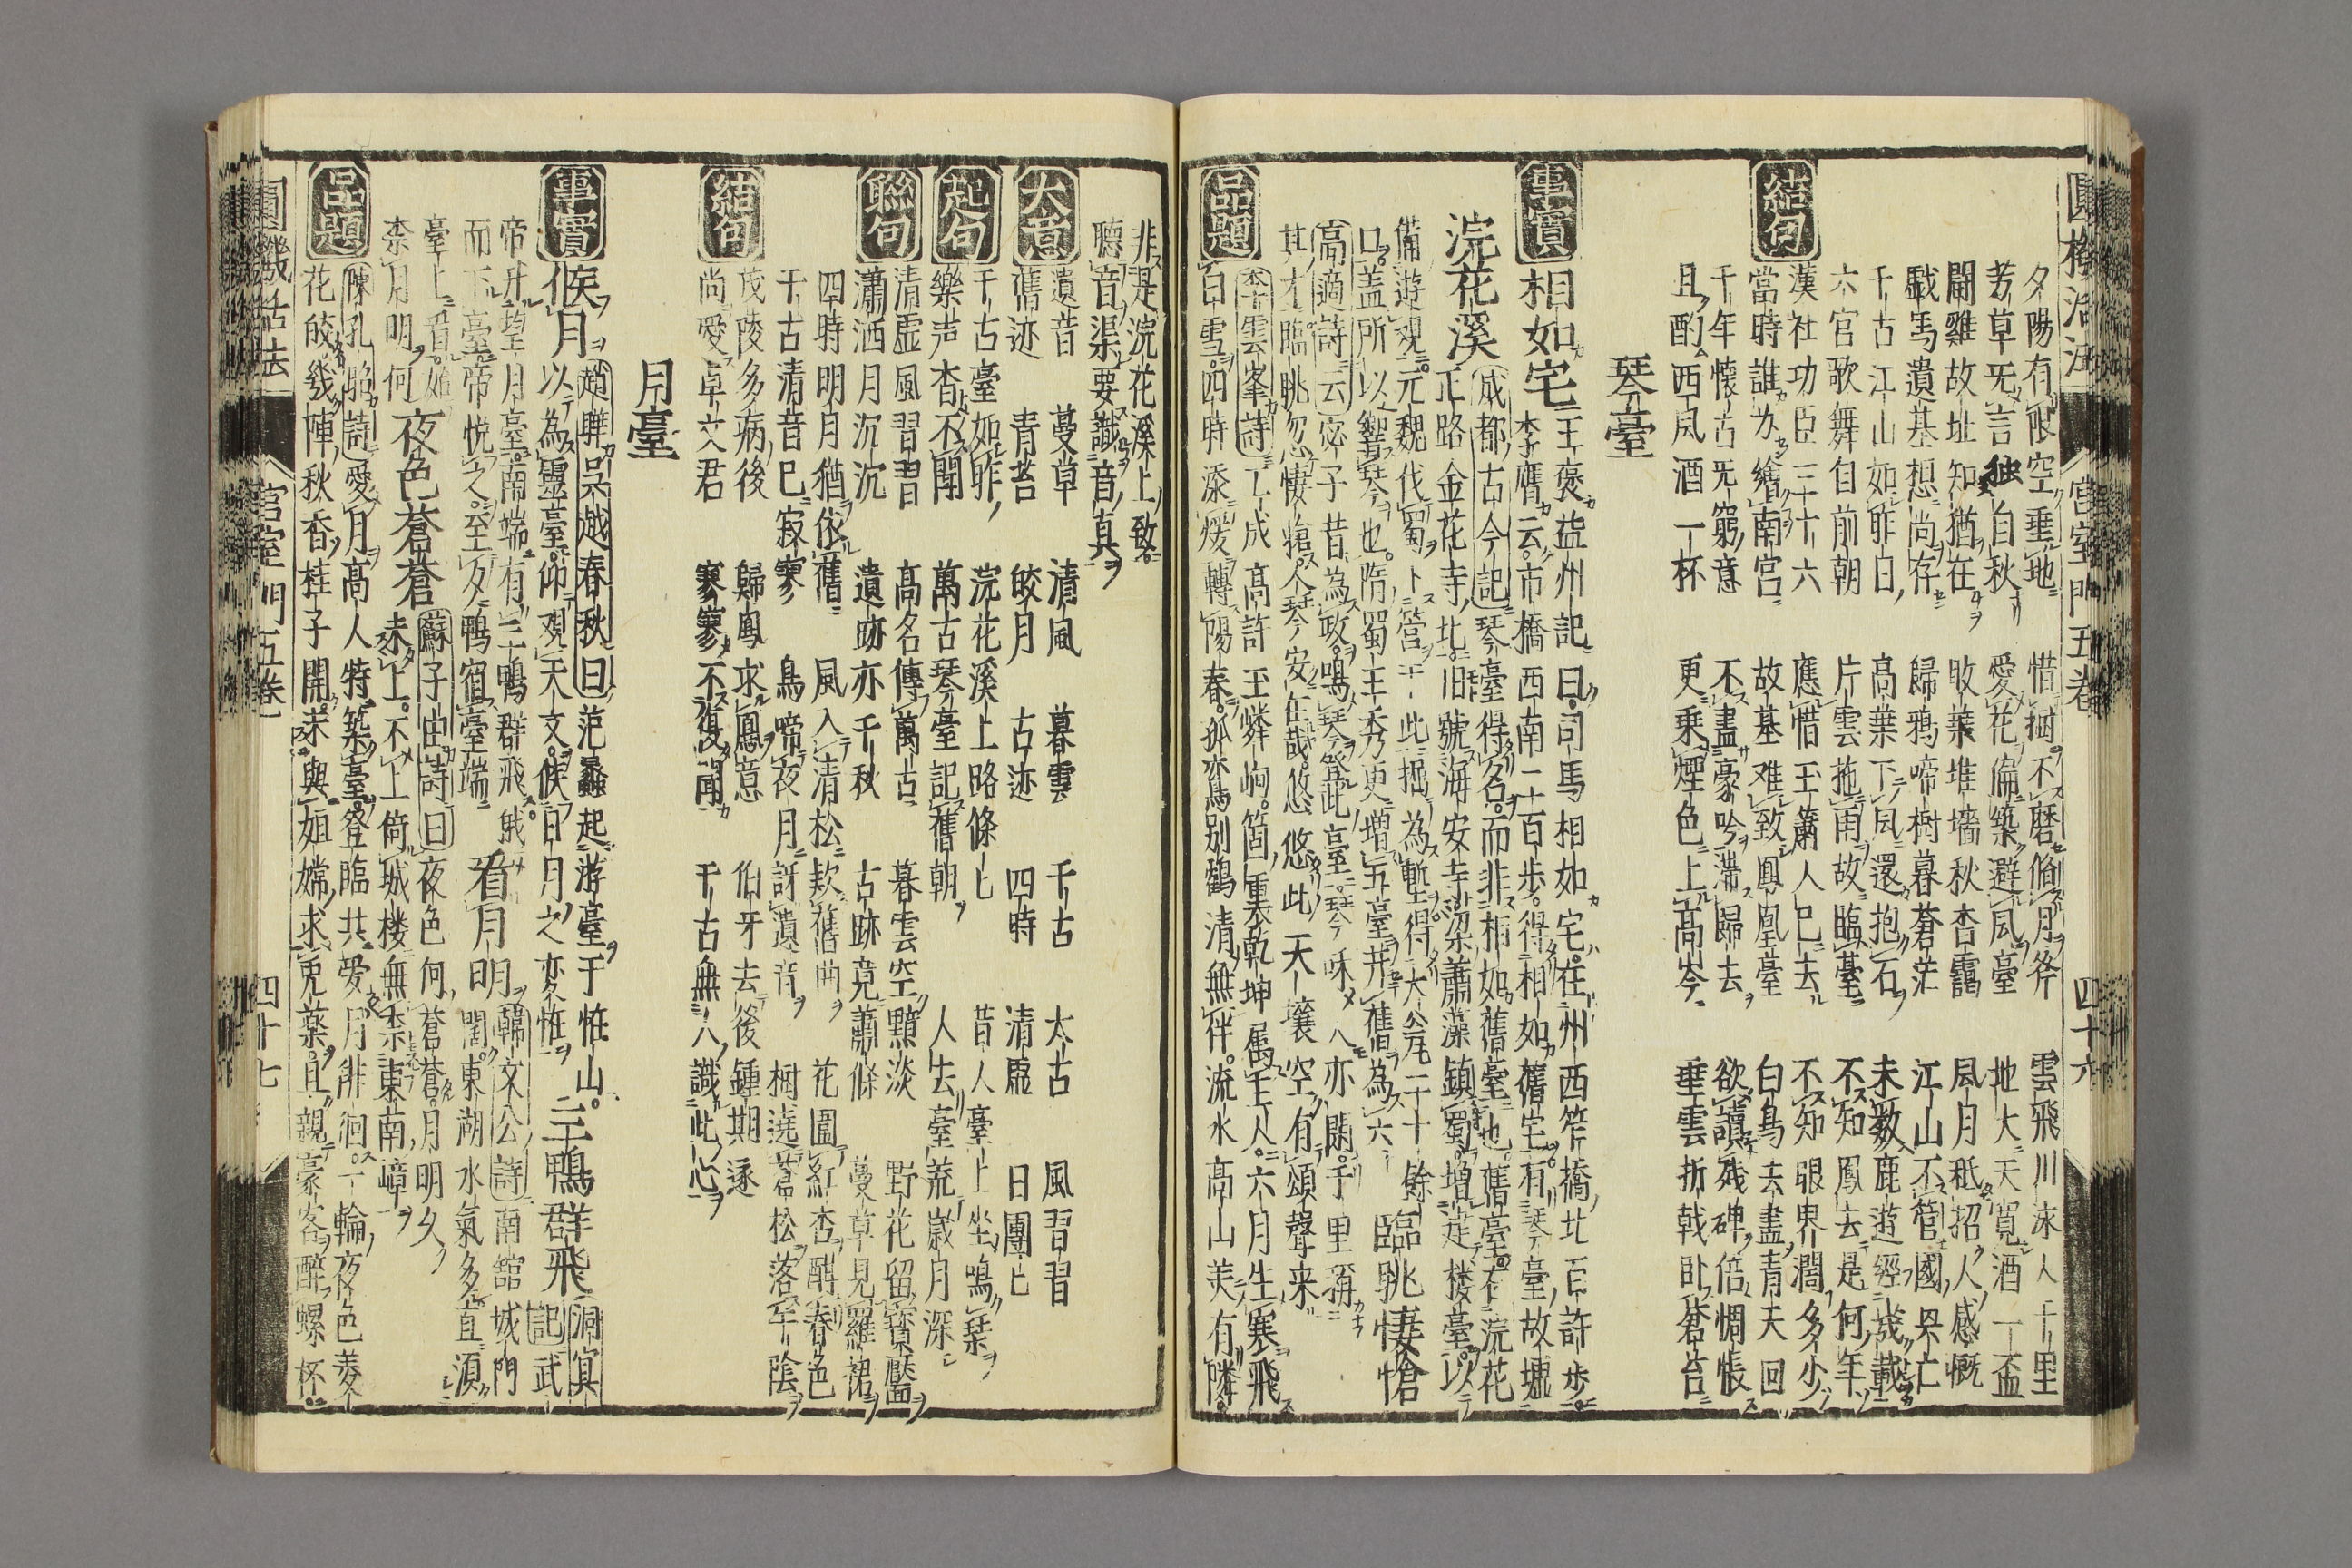 圓機活法 宮室門五卷 四十六
夕陽有限空垂地 惜樹不磨脩月斧 雲飛川泳人千里
芳草无言独自秋 愛花偏築避風臺 地大天寬酒一盃
鬪雞故址知猶在 敗葉堆墻秋杳靄 風月秪招人感慨
戲馬遺基想尚存 歸鴉啼樹暮蒼茫 江山不管國興亡
千古江山如昨日 高葉下風還抱石 未數鹿遊經幾載
六宮歌舞自前朝 片雲拖雨故臨臺 不知鳳去是何年
結句
漢社功臣三十六 應惜玉簫人已去 不知眼界濶多少
當時誰为繪南宮 故基难致鳳凰臺 白鳥去盡青天回
千年懷古旡窮意 不盡豪吟滯歸去 欲讀残碑倍惆悵
且酌西風酒一杯 更乗煙色上高岑 垂雲折戟卧蒼苔
琴臺
事實
相如宅 王褒益州記曰司馬相如宅在州西笮橋北百許步
李膺云市橋西南二百步得相如舊宅有琴臺故墟
浣花溪 成都古今記琴臺得名而非相如舊臺也舊臺在浣花
正路金花寺北旧號海安寺梁蕭藻鎮蜀增建楼臺以
備遊觀元魏伐蜀下營于此掘為塹得大瓮二十餘
口蓋所以響琴也隋蜀王秀更增五臺并舊為六 臨眺悽愴
高適詩云宓子昔為政鳴琴登此臺琴咊人亦閑千里稱
其才臨眺忽悽愴人琴安在哉悠悠此天壤空有頌聲来
品題
李雲峯詩工成高許玉嶙峋箇裏乾坤属主人六月生寒飛
白雪四時添煖轉陽春孤鸞别鶴清無伴流水高山美有隣
非是浣花溪上致
聽音渠要識音真
大意
遺音 蔓草 清風 暮雲 千古 太古 風習習
舊迹 青苔 皎月 古迹 四時 清虛 日團匕
起句
千古臺如昨 浣花溪上路條匕 昔人臺上坐鳴琹
樂声杳不聞 萬古琴臺記舊朝 人去臺荒歲月深
聯句
清虚風習習 高名傳萬古 暮雲空黯淡 野花留寶靨
瀟洒月沉沉 遺跡亦千秋 古跡竟蕭條 蔓草見羅裙
四時明月猶依舊 風入清松欵舊曲 花圍紅杏醋春色
千古清音已寂寥 鳥啼夜月訝遺音 樹遶蒼松落午陰
結句
茂陵多病後 歸鳳求凰意 伯牙去後鍾期逐
尚愛卓文君 寥寥不復聞 千古無人識此心
月臺
事實
候月 趙曄呉越春秋曰范蠡起游臺于恠山
以為靈臺仰觀天文候日月之変恠 三鴨群飛 洞冥
記武
帝升望月臺南端有三鴨群飛俄
而下臺帝悦之至夜鴨宿臺端 看月明 韓文公詩南舘城門
闊東湖水氣多直須
臺上看始
柰月明何 夜色蒼蒼 蘇子由詩曰夜色何蒼蒼月明久
未上不上倚城楼無柰東南嶂
品題
陳孔昭詩愛月高人特築臺登臨共愛月徘徊一輪夜色菱
花皎幾陣秋香桂子開未與姮嫦求兎薬且親豪客醉螺杯
圓機活法 宮室門五卷 四十七